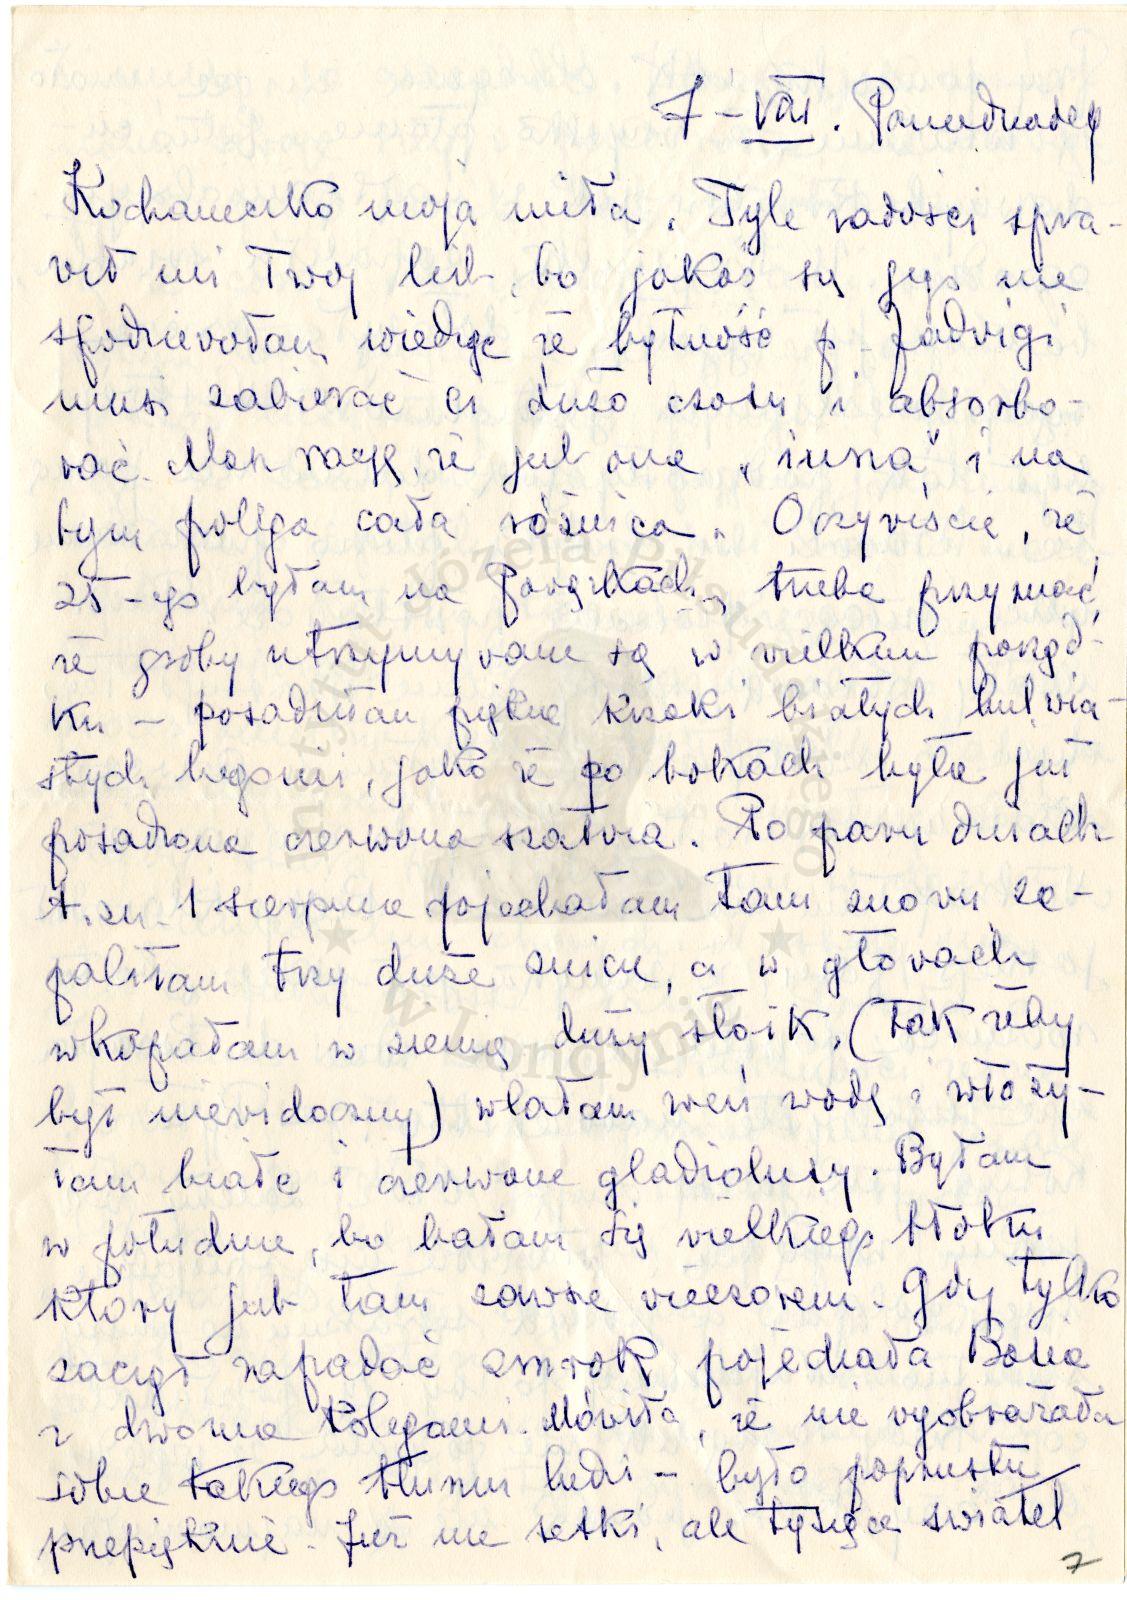 7 – VIII. Poniedziałek
Kochaneczko moja miła. Tyle radości spra-
wił mi Twój list, bo jakoś się jego nie
spodziewałam wiedząc że bytność p. Jadwigi
musi zabierać Ci dużo czasu i absorbo-
wać. Masz rację, że jest ona „inna" i na
tym polega cała różnica. Oczywiście, że
25-go byłam na Powązkach, trzeba przyznać,
że groby utrzymywane są w wielkim porząd-
ku – posadziłam piękne krzaki białych bulwia-
stych begonii, jako że po bokach była już
posadzona czerwona szałwia. Po paru dniach
t.zn. 1 sierpnia pojechałam tam znowu za-
paliłam trzy duże znicze, a w głowach
wkopałam w ziemię duży słoik, (tak żeby
był niewidoczny) wlałam weń wodę i włoży-
łam białe i czerwone gladiolusy. Byłam
w południe, bo bałam się wielkiego tłoku
który jest tam zawsze wieczorem. Gdy tylko
zaczął zapadać zmrok pojechała
z dwoma kolegami. Mówiła, że nie wyobrażała
sobie takiego tłumu ludzi – było poprostu
przepięknie. Już nie setki, ale tysiące świateł
7
Instytut Józefa Piłsudskiego
w Londynie